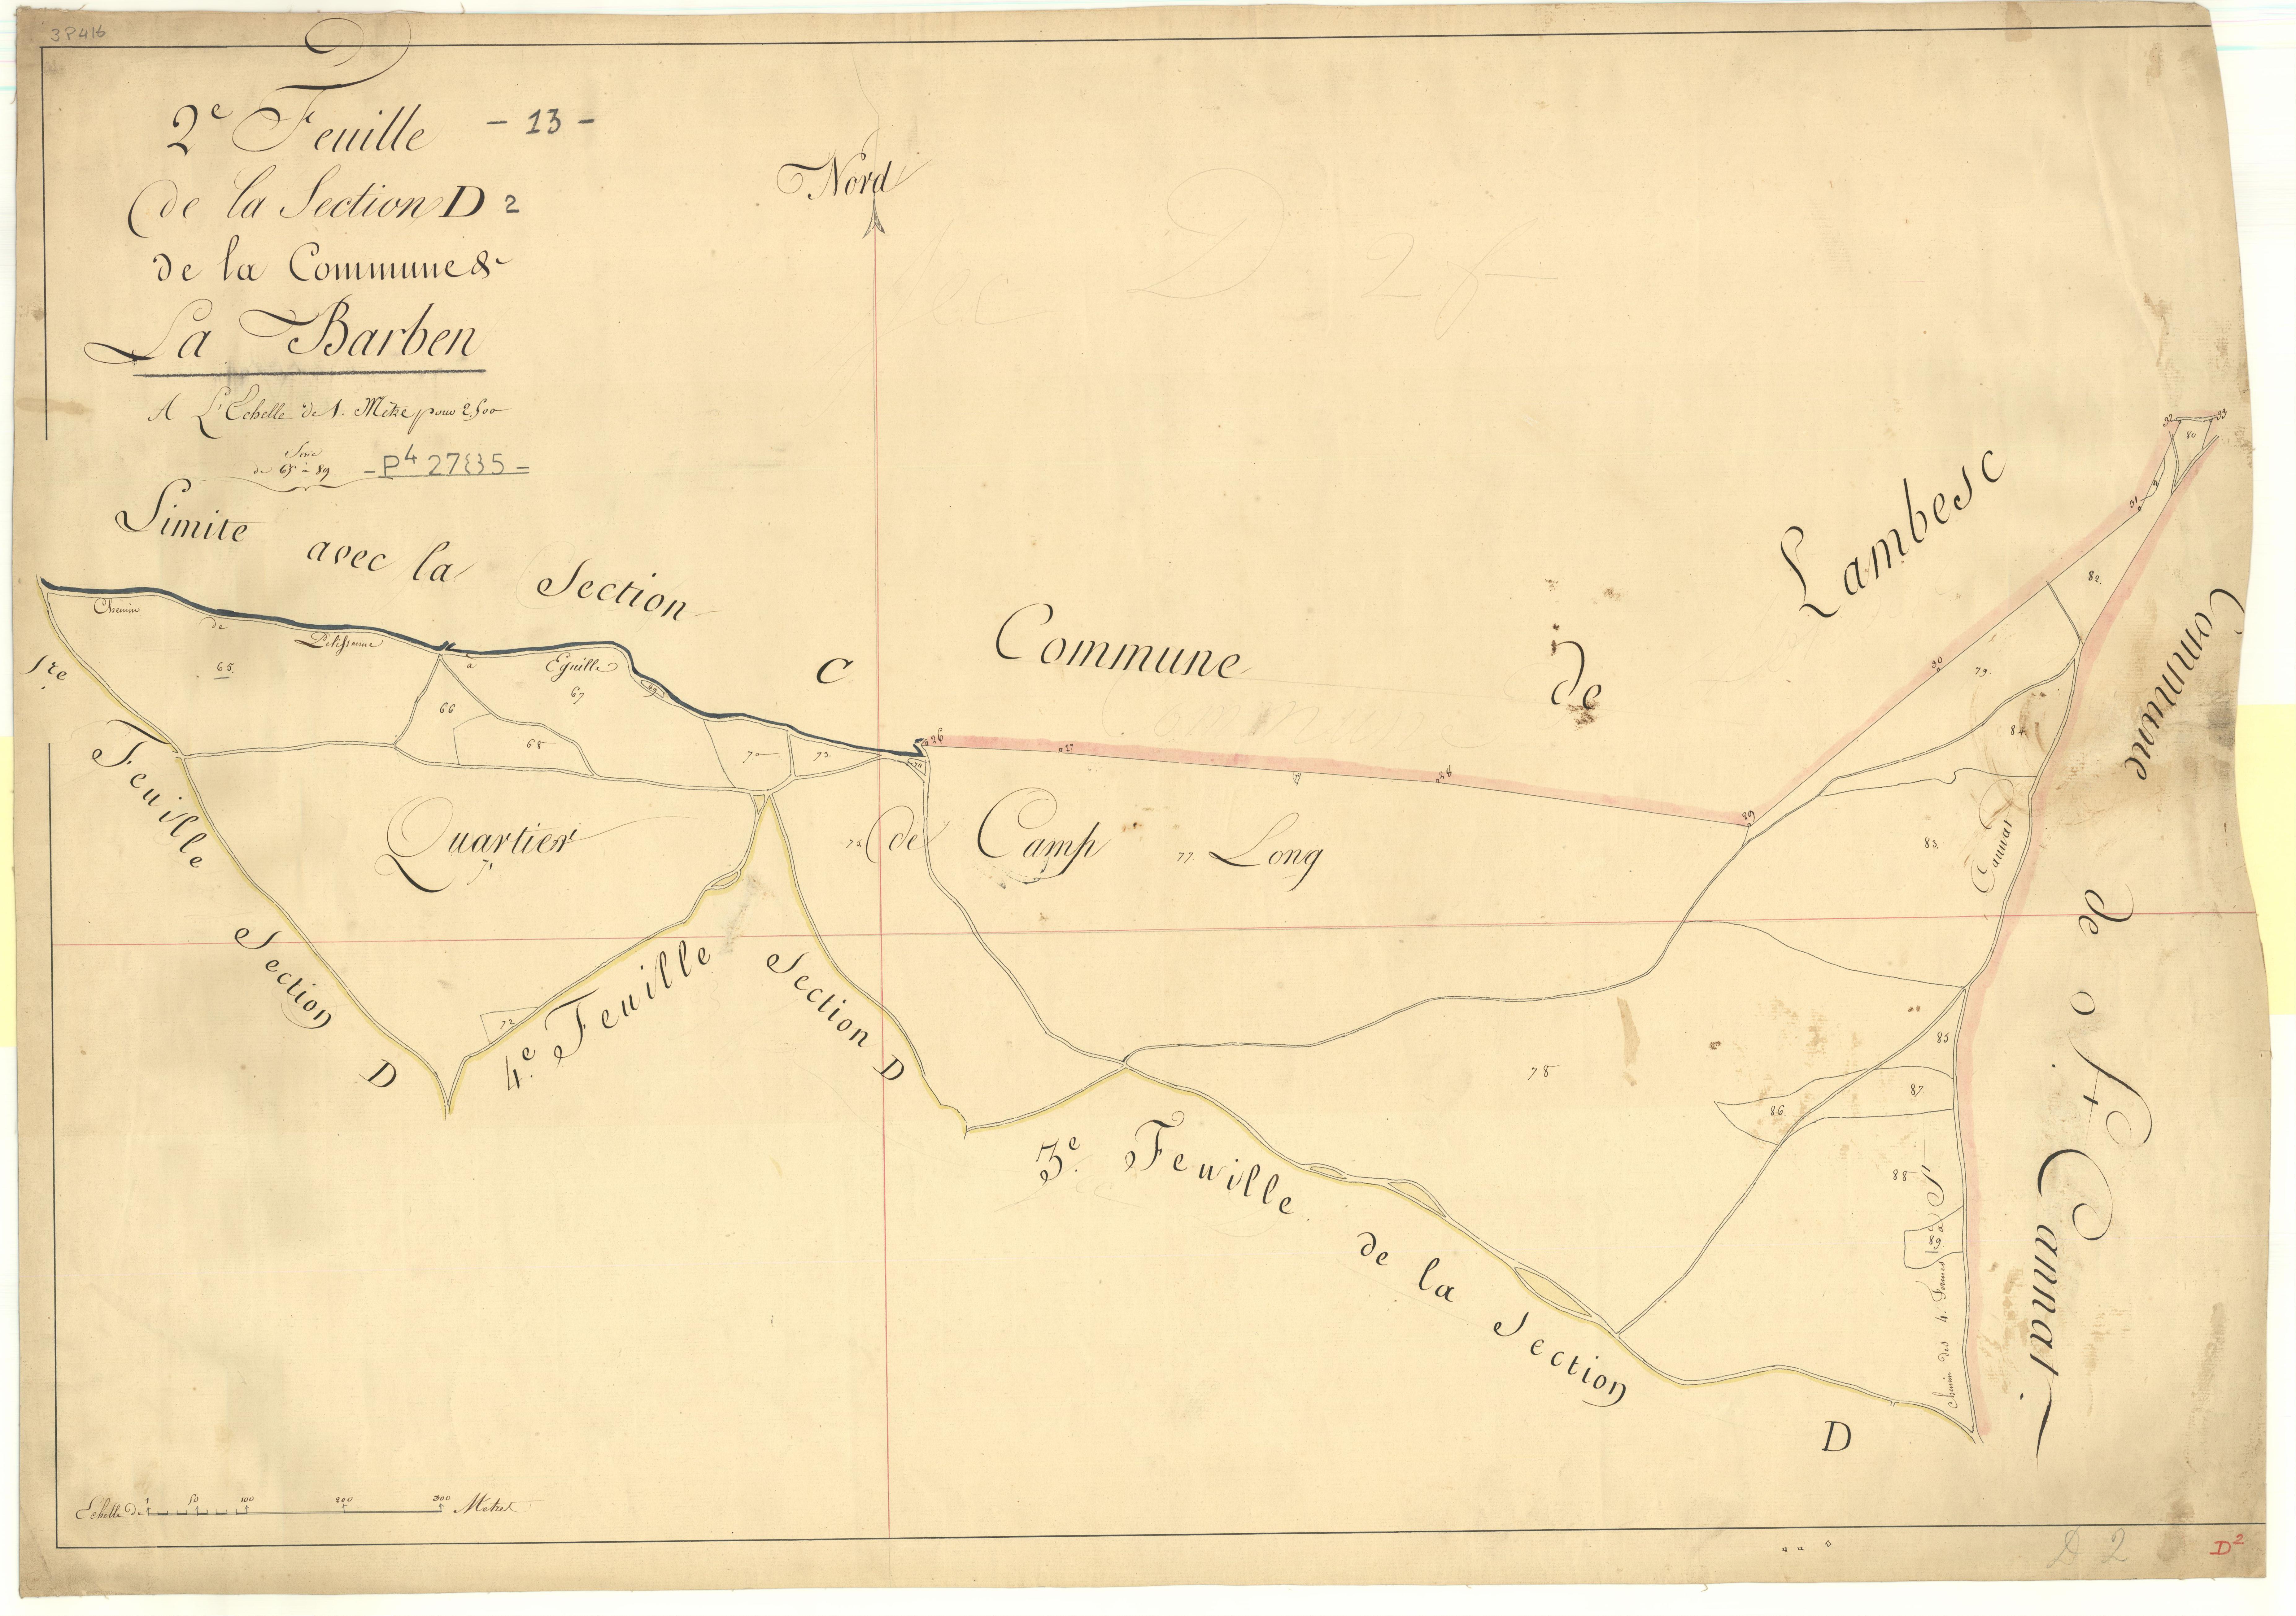 3P416
2e Feuille - 13 -
de la Section D 2
de la Commune de
La Barben
A L'Echelle de 1. Mètre pour 2,500
Serie
de 65 à 89 - P4 27
Nord
Limite avec la Section C
Chemin de Pelissanne à Eguille
Commune de Lambesc
Commune de St Cannat
1re Feuille Section D
4.e Feuille Section D
3.e Feuille de la Section D
Quartier de Camp Long
Chemin des 4. Termes à St
Cannat
65.
66
67
68
69
70
71
72
73.
74
75
77
78
79.
80
82.
83.
84.
85
86.
87.
88
89
26
27
28
29
30
31
32
33
Echelle de 1 50 100 200 300 Mètres
D 2
D2